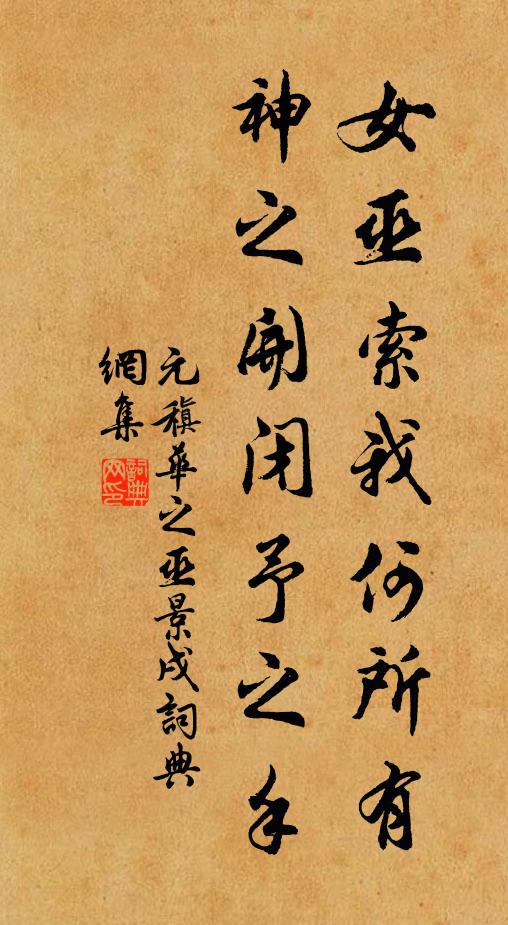 女巫索我何所有
神之開閉予之手
元稹華之巫景戌詞典
網集
詞典
网印